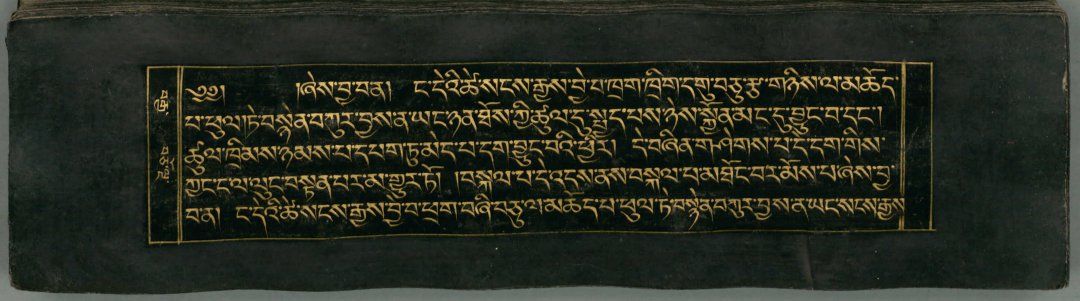 ༄༅། །ཞེས་བྱ་བན། ང་དེའི་ཚེ་སངས་རྒྱས་བྱེ་བ་ཁྲག་ཁྲིག་དགུ་བཅུ་རྩ་གཉིས་ལ་མཆོད་
པ་ཕུལ་ཏེ་བསྙེན་བཀུར་བྱས་ན་ཡང་ཉན་ཐོས་ཀྱི་ཚུལ་དུ་སྨྲད་པས་ཉེས་སྐྱོན་མང་དུ་བྱུང་བ་དང་།
ཚུལ་ཁྲིམས་ཉམས་པ་དཔག་ཏུ་མེད་པ་དག་བྱུང་བའི་ཕྱིར། དེ་བཞིན་གཤེགས་པ་དེ་དག་གིས་
ཀྱང་ང་ལ་ལུང་བསྟན་པར་མ་གྱུར་ཏོ། །བསྐལ་པ་དེ་འདས་ནས་བསྐལ་པ་མཐོང་བར་མོས་པ་ཞེས་བྱ་
བན། ང་དེའི་ཚེ་སངས་རྒྱས་བྱེ་བ་ཕྲག་བཞི་བཅུ་ལ་མཆོད་པ་ཕུལ་ཏེ་བསྙེན་བཀུར་བྱས་ན་ཡང་སངས་རྒྱས་